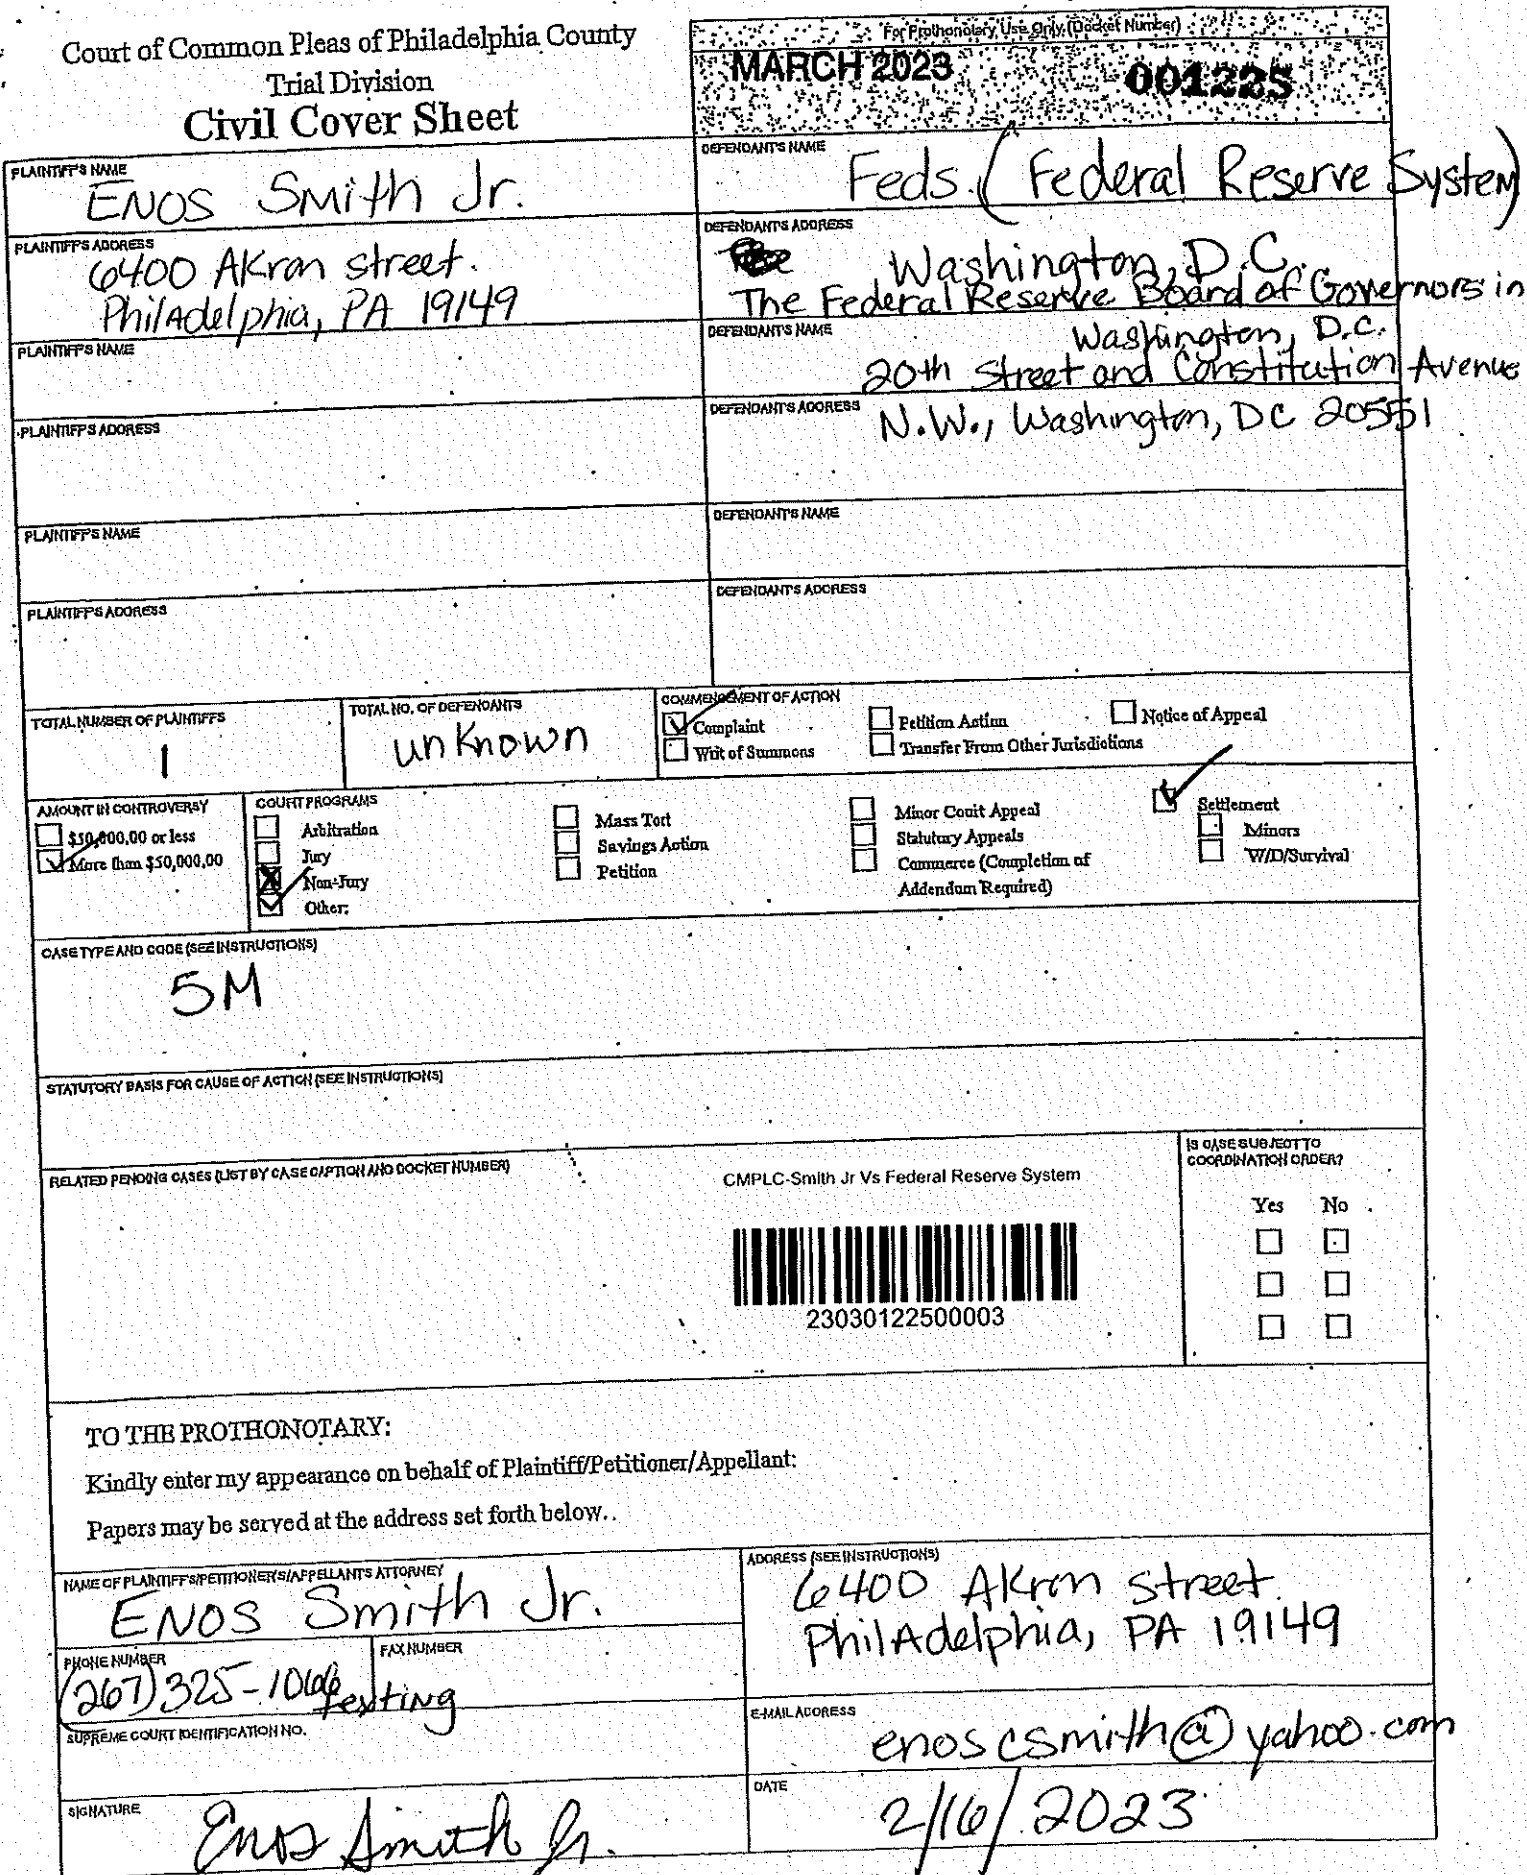 Court of Common Pleas of Philadelphia County
Trial Division
Civil Cover Sheet
For Prothonotary Use Only (Docket Number)
MARCH 2023
001225
PLAINTIFF'S NAME
ENOS Smith Jr.
DEFENDANT'S NAME
Feds. (Federal Reserve System)
PLAINTIFF'S ADDRESS
6400 Akron street.
Philadelphia, PA 19149
DEFENDANT'S ADDRESS
Washington, D.C.
The Federal Reserve Board of Governors in
Washington, D.C.
PLAINTIFF'S NAME
DEFENDANT'S NAME
20th Street and Constitution Avenue
PLAINTIFF'S ADDRESS
DEFENDANT'S ADDRESS
N.W., Washington, DC 20551
PLAINTIFF'S NAME
DEFENDANT'S NAME
PLAINTIFF'S ADDRESS
DEFENDANT'S ADDRESS
TOTAL NUMBER OF PLAINTIFFS
1
TOTAL NO. OF DEFENDANTS
unknown
COMMENCEMENT OF ACTION
Complaint
Petition Action
Notice of Appeal
Writ of Summons
Transfer From Other Jurisdictions
AMOUNT IN CONTROVERSY
$50,000.00 or less
More than $50,000.00
COURT PROGRAMS
Arbitration
Jury
Non-Jury
Other:
Mass Tort
Savings Action
Petition
Minor Court Appeal
Statutory Appeals
Commerce (Completion of
Addendum Required)
Settlement
Minors
W/D/Survival
CASE TYPE AND CODE (SEE INSTRUCTIONS)
5M
STATUTORY BASIS FOR CAUSE OF ACTION (SEE INSTRUCTIONS)
RELATED PENDING CASES (LIST BY CASE CAPTION AND DOCKET NUMBER)
CMPLC-Smith Jr Vs Federal Reserve System
23030122500003
IS CASE SUBJECT TO
COORDINATION ORDER?
Yes No
TO THE PROTHONOTARY:
Kindly enter my appearance on behalf of Plaintiff/Petitioner/Appellant:
Papers may be served at the address set forth below..
NAME OF PLAINTIFF'S/PETITIONER'S/APPELLANT'S ATTORNEY
ENOS Smith Jr.
ADDRESS (SEE INSTRUCTIONS)
6400 Akron street.
Philadelphia, PA 19149
PHONE NUMBER
(267)325-1066
texting
FAX NUMBER
SUPREME COURT IDENTIFICATION NO.
E-MAIL ADDRESS
enoscsmith@yahoo.com
SIGNATURE
Enos Smith Jr.
DATE
2/16/2023